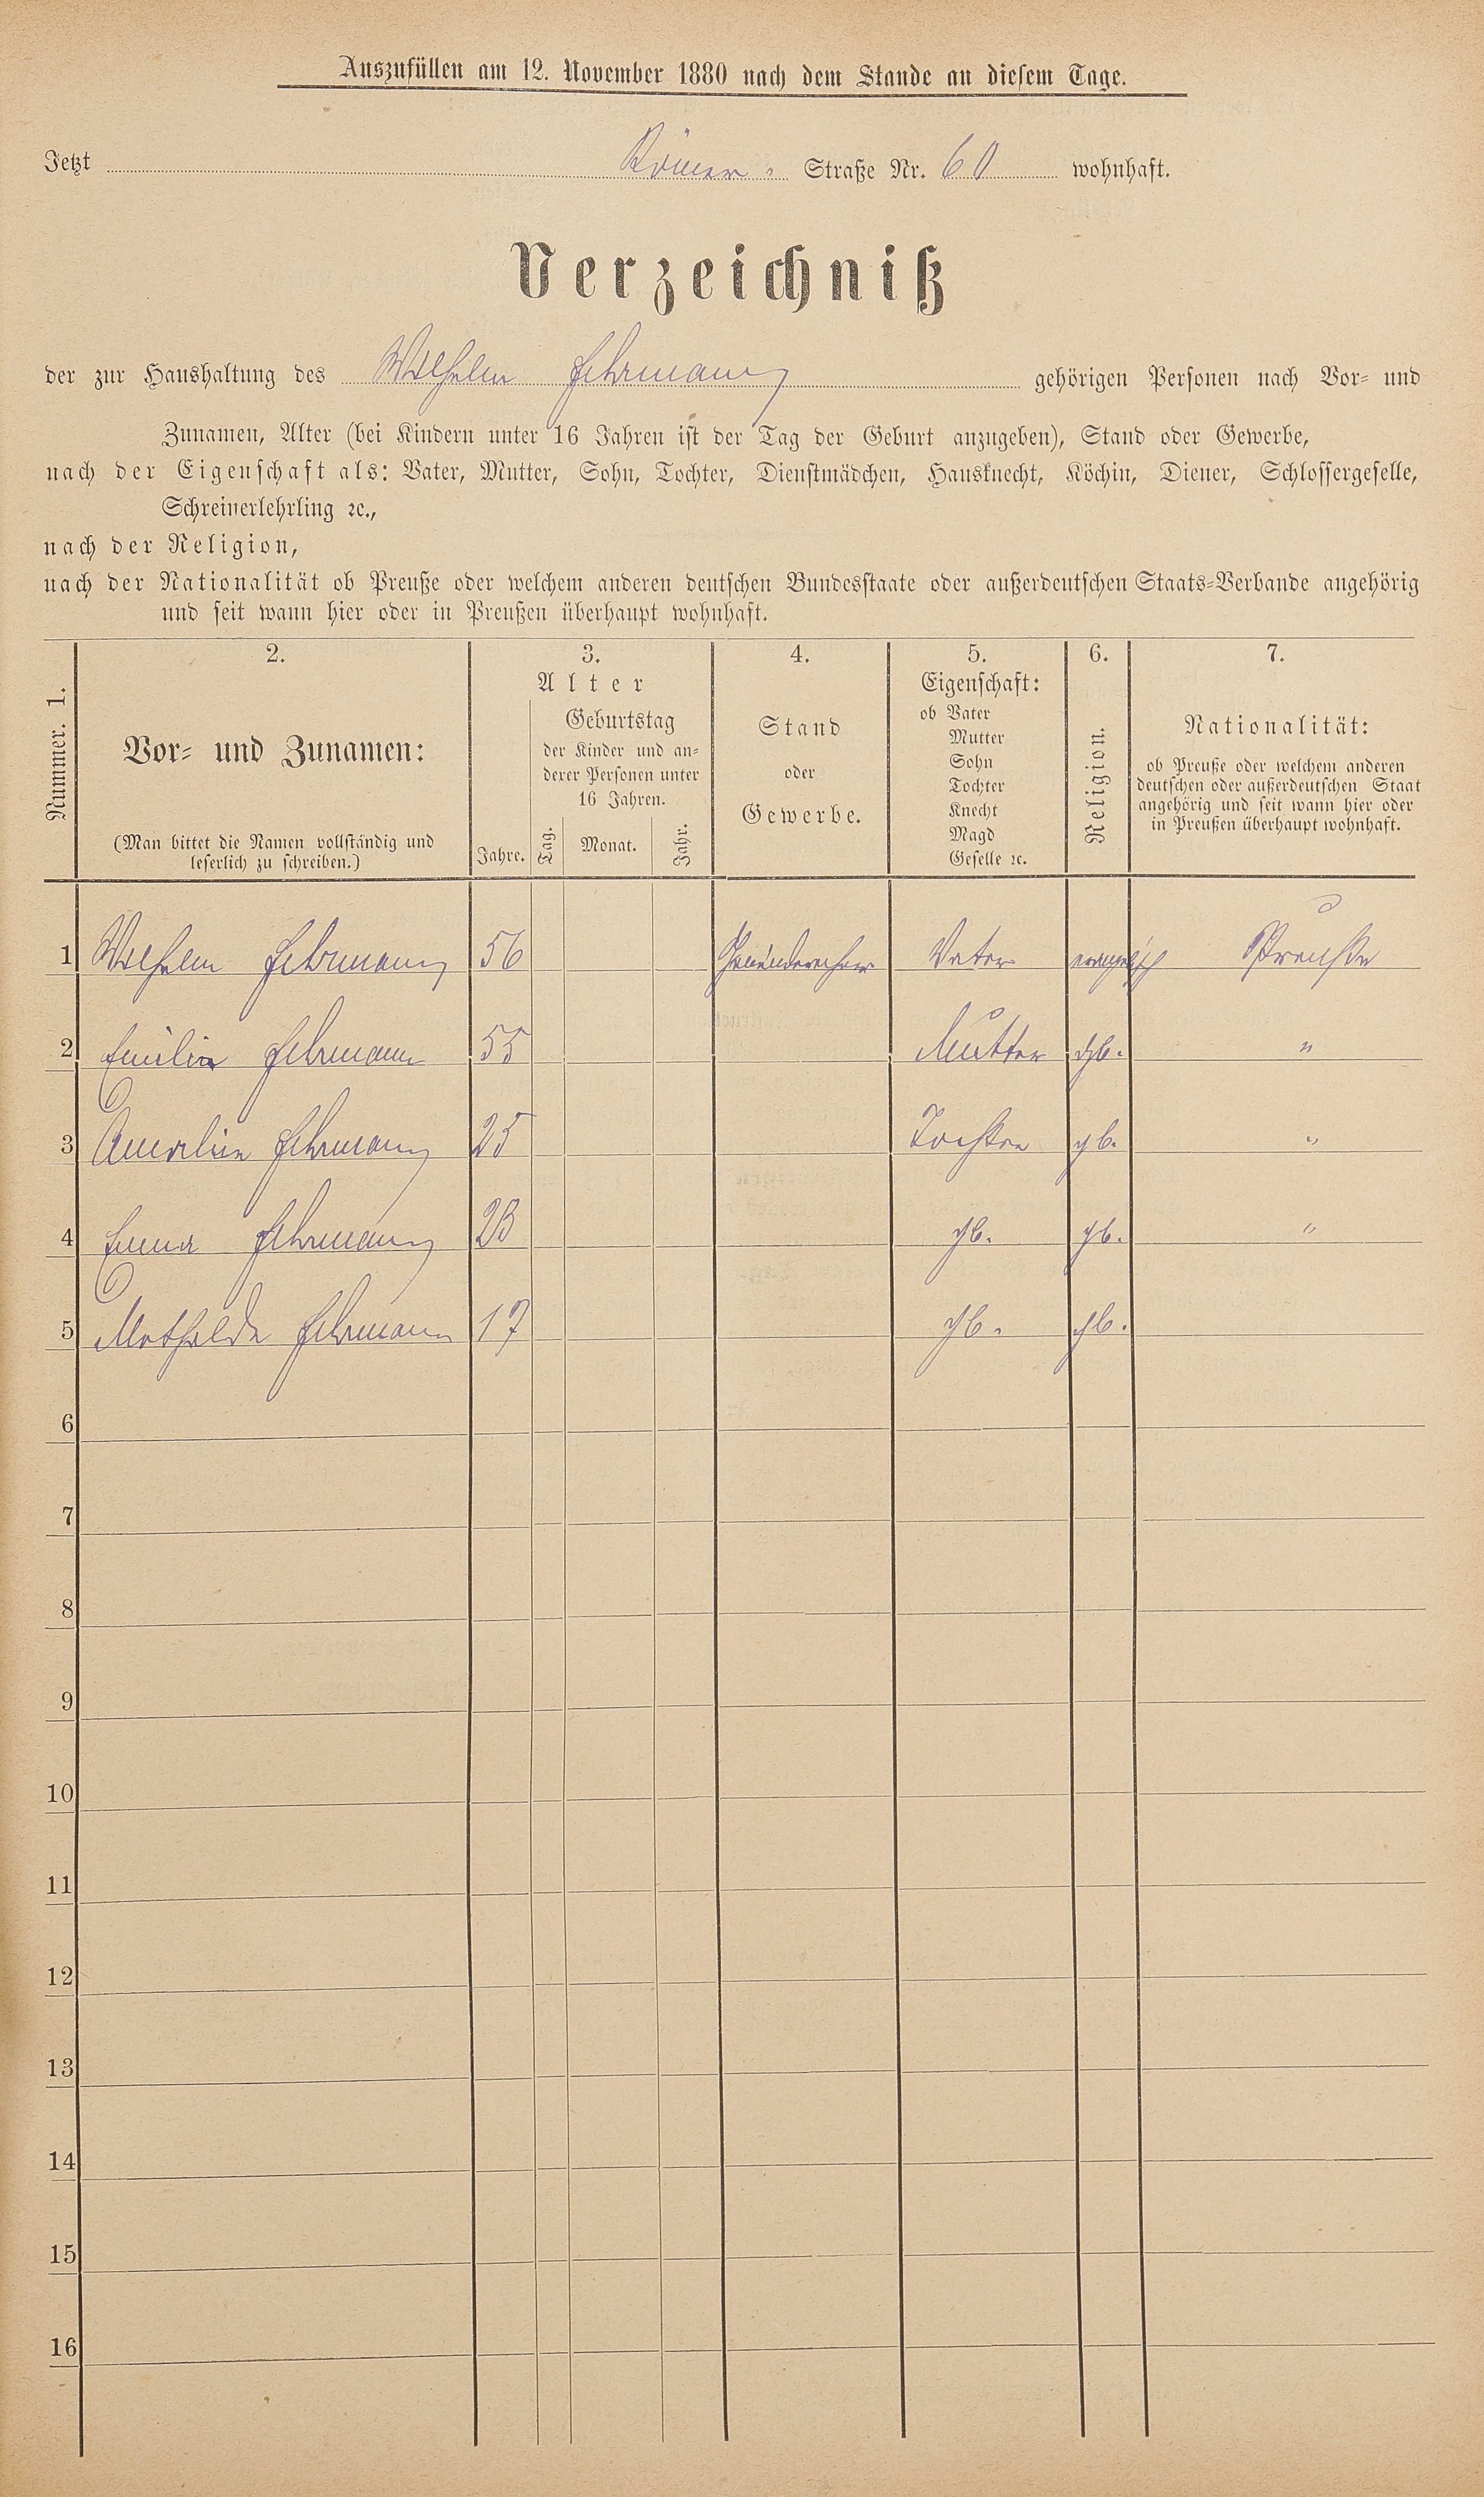 Auszufüllen am 12. November 1880 nach dem Stande an diesem Tage.
Jetzt Römer- Straße Nr. 60 wohnhaft.
Verzeichniß
der zur Haushaltung des Wilhelm Fehrmann gehörigen Personen nach Vor- und
Zunamen, Alter (bei Kindern unter 16 Jahren ist der Tag der Geburt anzugeben), Stand oder Gewerbe,
nach der Eigenschaft als: Vater, Mutter, Sohn, Tochter, Dienstmädchen, Hausknecht, Köchin, Diener, Schlossergeselle,
Schreinerlehrling ꝛc.,
nach der Religion,
nach der Nationalität ob Preuße oder welchem anderen deutschen Bundesstaate oder außerdeutschen Staats-Verbande angehörig
und seit wann hier oder in Preußen überhaupt wohnhaft.
Nummer. 1.
2.
Vor- und Zunamen:
(Man bittet die Namen vollständig und
leserlich zu schreiben.)
3.
Alter
Jahre.
Geburtstag
der Kinder und an-
derer Personen unter
16 Jahren.
Tag. Monat. Jahr.
4.
Stand
oder
Gewerbe.
5.
Eigenschaft:
ob Vater
Mutter
Sohn
Tochter
Knecht
Magd
Geselle ꝛc.
6.
Religion.
7.
Nationalität:
ob Preuße oder welchem anderen
deutschen oder außerdeutschen Staat
angehörig und seit wann hier oder
in Preußen überhaupt wohnhaft.
1 Wilhelm Fehrmann 56 Vater evangelisch Preuße
2 Emilie Fehrmann 55 Mutter dgl. "
3 Amelie Fehrmann 25 Tochter dgl. "
4 Emma Fehrmann 23 dgl. dgl. "
5 Mathilde Fehrmann 17 dgl. dgl.
6
7
8
9
10
11
12
13
14
15
16